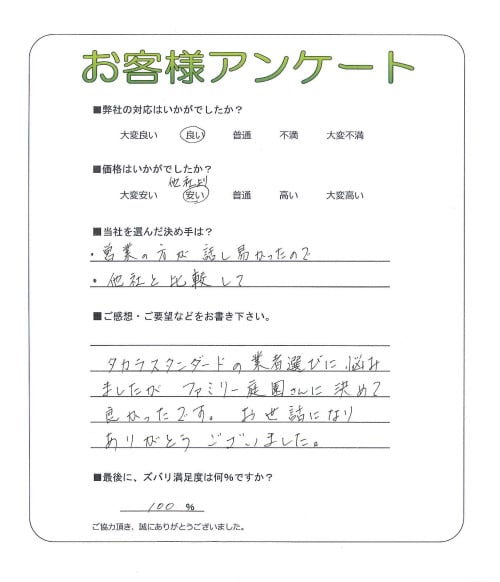 お客様アンケート
■弊社の対応はいかがでしたか？
大変良い 良い 普通 不満 大変不満
■価格はいかがでしたか？
他社より
大変安い 安い 普通 高い 大変高い
■当社を選んだ決め手は？
・営業の方が話し易かったので
・他社と比較して
■ご感想・ご要望などをお書き下さい。
タカラスタンダードの業者選びに悩み
ましたが ファミリー庭園さんに決めて
良かったです。 お世話になり
ありがとう ございました。
■最後に、ズバリ満足度は何%ですか？
100 %
ご協力頂き、誠にありがとうございました。